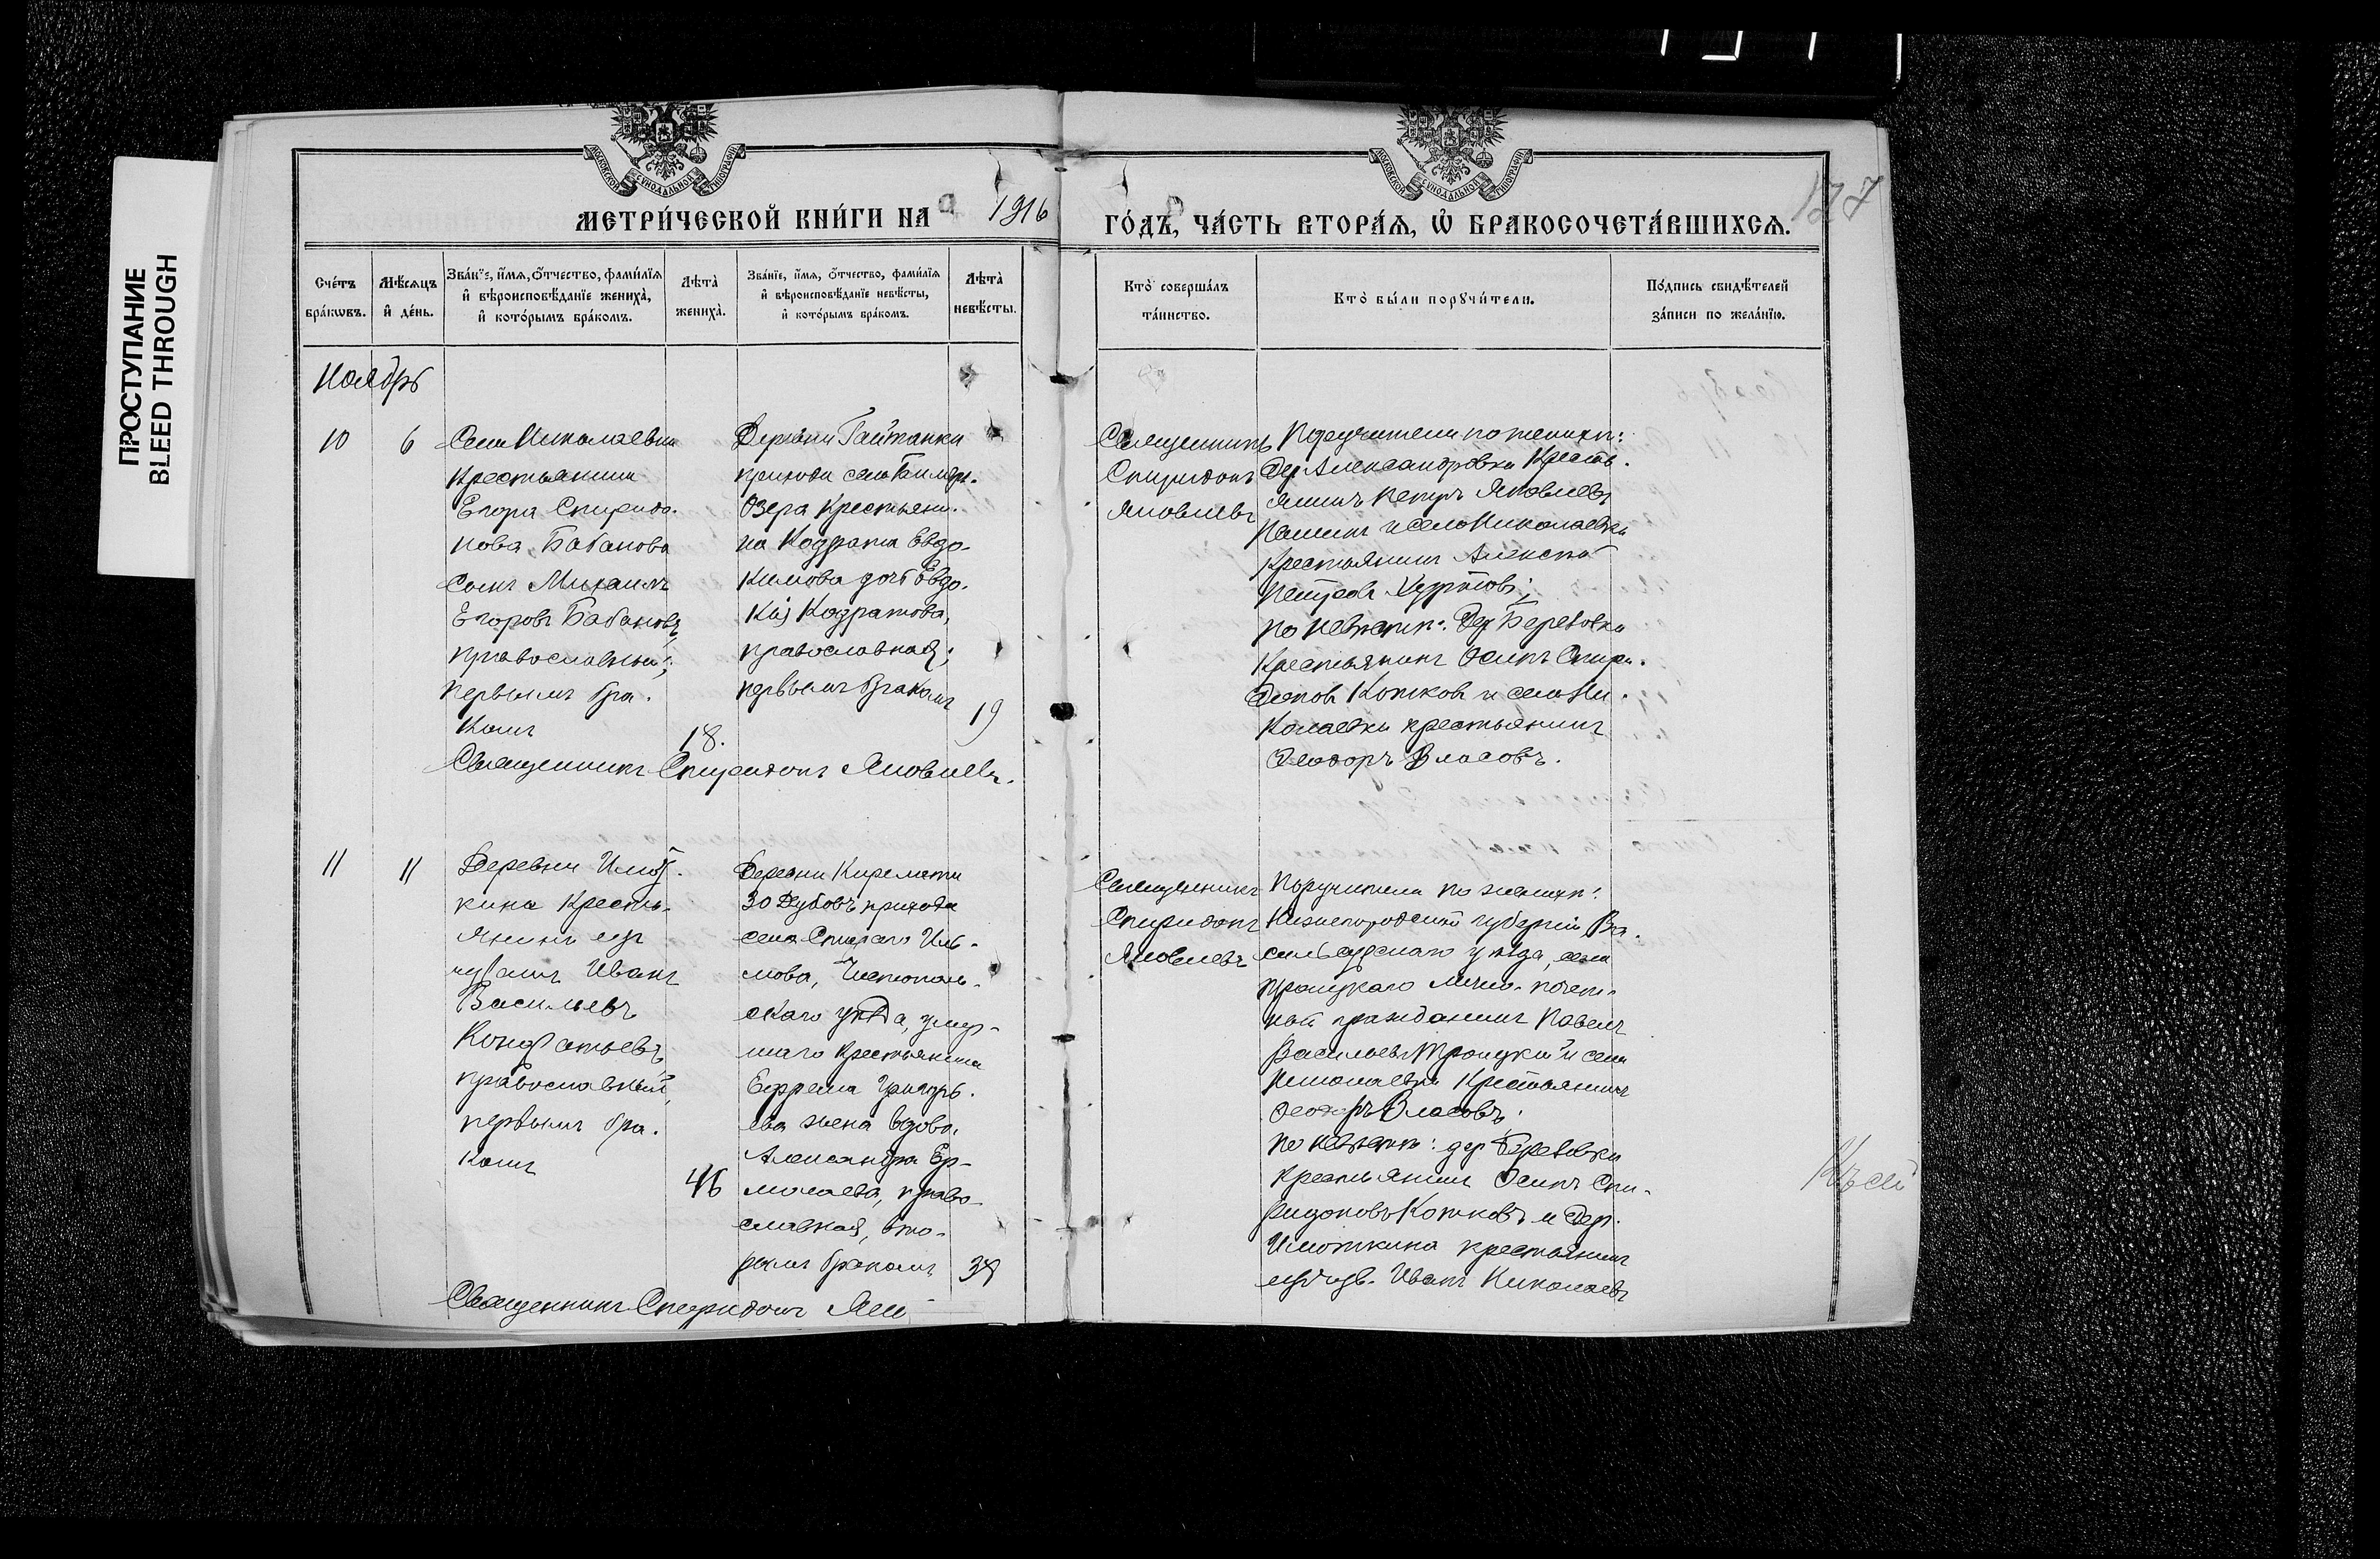 ПРОСТУПАНИЕ
BLEED THROUGH
МЕТРИ́ЧЕСКОЙ КНИ́ГИ НА 1916
ГО́ДЪ, ЧА́СТЬ ВТОРА́Ѧ, Ѡ҆ БРАКОСОЧЕТА́ВШИХСѦ.
127
Сче́тъ бра́кѡвъ.
Мѣ́сѧцъ и҆ де́нь.
Зва́нїе, и҆́мѧ, ѻ҆́тчество, фами́лїѧ
и҆ вѣроисповѣ́данїе жениха̀,
и҆ кото́рымъ бра́комъ.
Лѣта̀ жениха̀.
Зва́нїе, и҆́мѧ, ѻ҆́тчество, фами́лїѧ
и҆ вѣроисповѣ́данїе невѣ́сты,
и҆ кото́рымъ бра́комъ.
Лѣта̀ невѣ́сты.
Кто̀ соверша́лъ
та́инство.
Кто̀ бы́ли порꙋчи́тели.
По́дпись свидѣ́телей
за́писи по жела́нїю.
Ноябрь
10
6
Села Николаевки
Крестьянина
Егора Спиридо-
нова Бабанова
сынъ Михаилъ
Егоровъ Бабановъ,
православный;
первымъ бра-
комъ
18.
Деревни Гайтанки
прихода села Биляръ-
Озера Крестьяни-
на Кодрата Евдо-
кимова дочь Евдо-
кія Кодратова,
православная;
первымъ бракомъ
19
Священникъ Спиридонъ Яковлевъ.
Священникъ
Спиридонъ
Яковлевъ
Поручители по женихѣ:
Дер. Александровки Кресть-
янинъ Петръ Яковлевъ
и села Николаевки
Крестьянинъ Алексѣй
Петровъ
по невѣстѣ: Дер. Березовки
Крестьянинъ Осипъ Спири-
доновъ Котковъ и села Ни-
колаевки крестьянинъ
Ѳеодоръ Власовъ.
11
11
Деревни Имѣт-
кина Кресть-
янинъ изъ
чувашъ Иванъ
Васильевъ
Кондратьевъ,
православный,
первымъ бра-
комъ
46
Деревни Киремети
30 Дубовъ прихода
села Стараго Иль-
мова, Чистополь-
скаго уѣзда, умер-
шаго Крестьянина
Ефрема Григорь-
ева жена вдова,
Александра Ер-
молаева, право-
славная, вто-
рымъ бракомъ
38
Священникъ Спиридонъ
Священникъ
Спиридонъ
Яковлевъ
Поручители по женихѣ:
Нижегородской губерніи Ва-
сильсурскаго уѣзда, села
Троицкаго личн. почет-
ный гражданинъ Павелъ
Васильевъ Троицкій и села
Николаевки Крестьянинъ
Ѳеодоръ Власовъ;
по невѣстѣ: дер. Березовки
Крестьянинъ Осипъ Спи-
ридоновъ Котковъ и Дер.
крестьянинъ
Иванъ Николаевъ